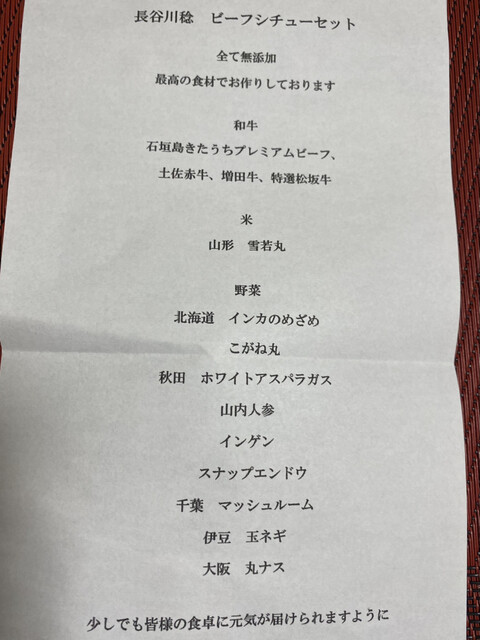 長谷川稔　ビーフシチューセット
全て無添加
最高の食材でお作りしております
和牛
石垣島きたうちプレミアムビーフ、
土佐赤牛、増田牛、特選松坂牛
米
山形　雪若丸
野菜
北海道　インカのめざめ
こがね丸
秋田　ホワイトアスパラガス
山内人参
インゲン
スナップエンドウ
千葉　マッシュルーム
伊豆　玉ネギ
大阪　丸ナス
少しでも皆様の食卓に元気が届けられますように